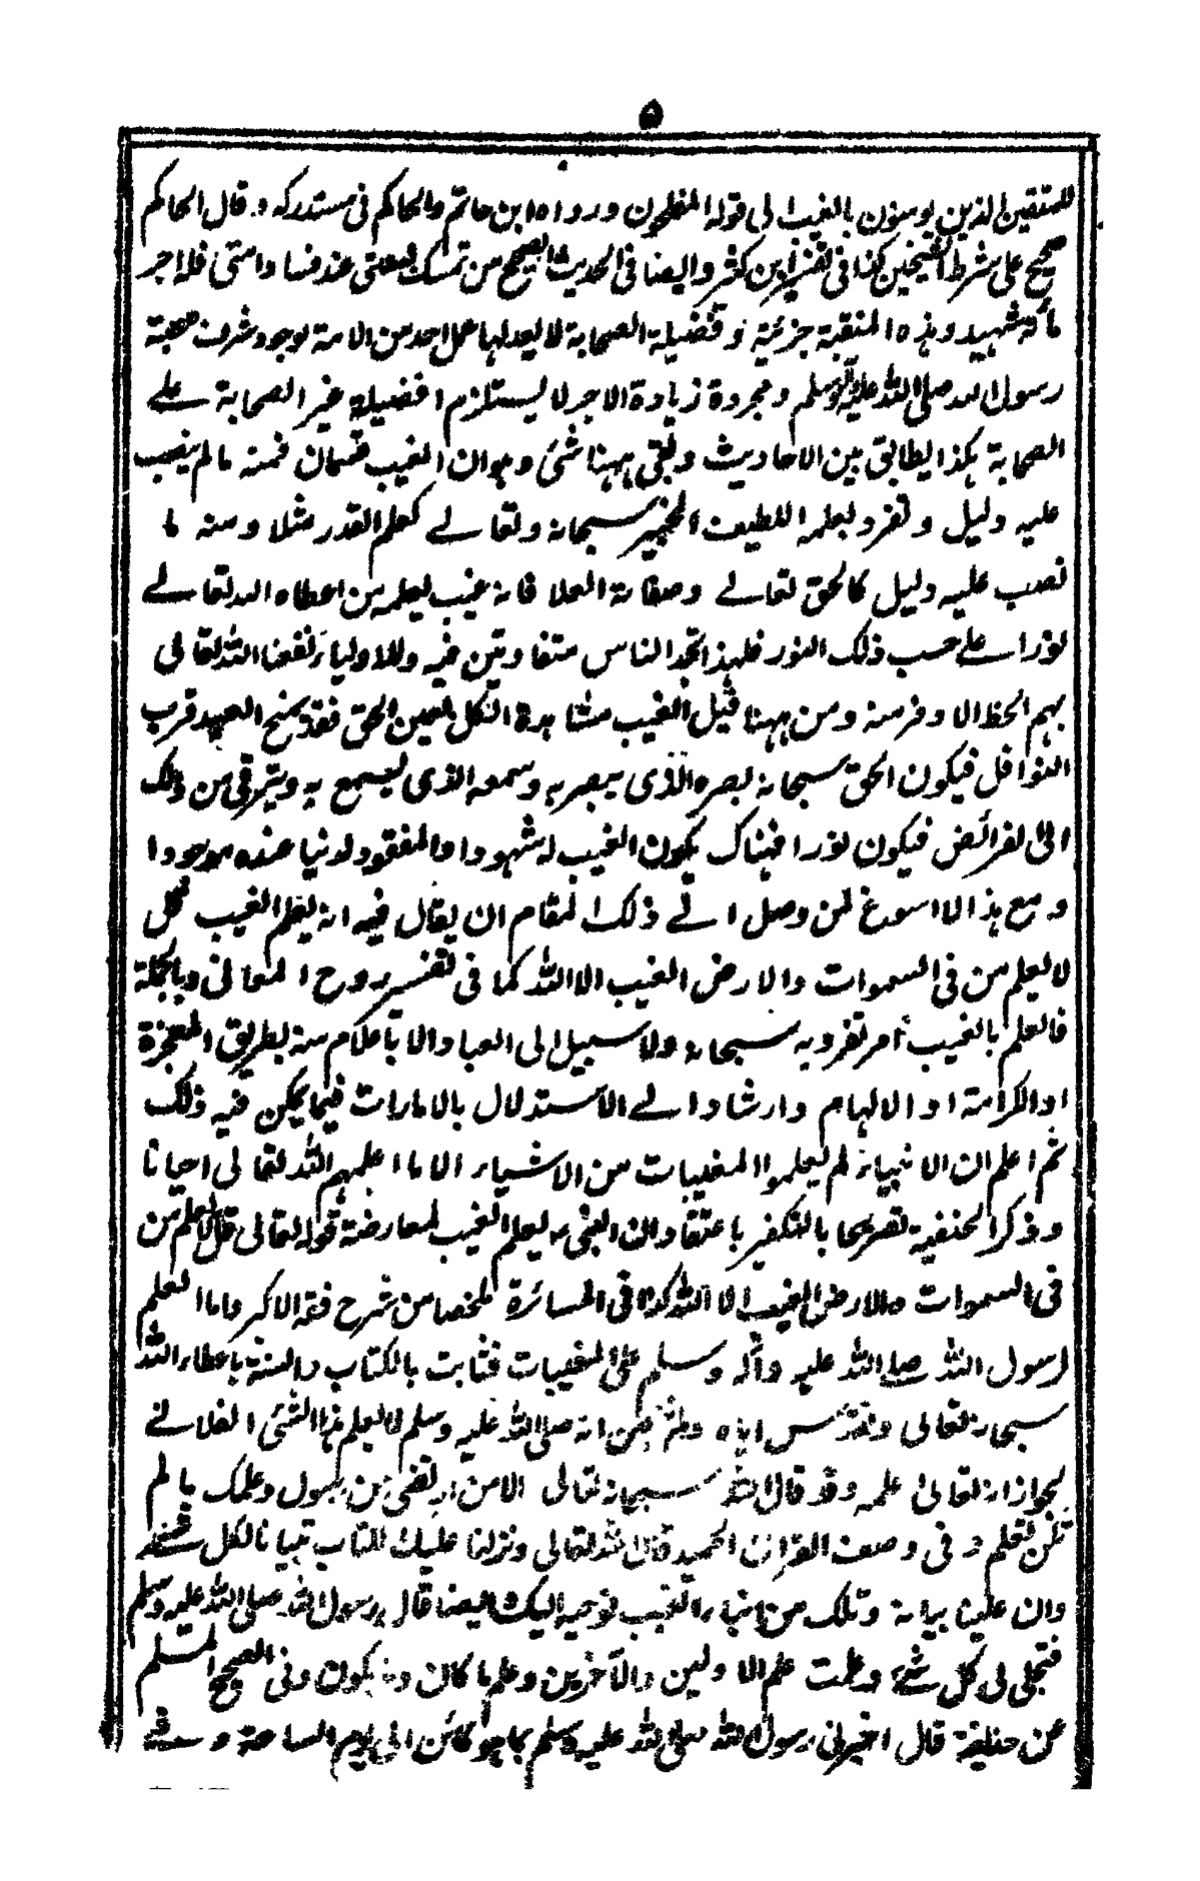 ۵
للمتقين الذين يومنون بالغيب الى قوله المفلحون ورواه ابن حاتم والحاكم فى مستدركه و قال الحاكم
صحيح على شرط الشيخين كذا فى تفسير ابن كثير وايضا فى الحديث الصحيح من تمسك بسنتى عند فساد امتى فله اجر
مأته شهيد وهذه المنقبة جزئية و فضيلة الصحابة لا يعدلها عمل احد من الامة لوجود شرف صحبة
رسول الله صلى الله عليه وسلم ومجردة زيادة الاجر لا يستلزم افضيلة غير الصحابة على
الصحابة هكذا يطابق بين الاحاديث وبقى ههنا شئ وهو ان الغيب قسمان فمنه مالم ينصب
عليه دليل وتفرد بعلمه اللطيف الخبير سبحانه وتعالى كعلم القدر مثلا ومنه ما
نصب عليه دليل كالحق تعالى وصفاته العلا فانه غيب يعلمه من اعطاه الله تعالى
نورا على حسب ذلك النور فلهذا تجد الناس متفاوتين فيه وللاولياء نفعنا الله تعالى
بهم الحظ الاوفر منه ومن ههنا قيل الغيب مشاهدة الكل بعين الحق فقد يمنح العبد قرب
النوافل فيكون الحق سبحانه بصره الذى يبصر به وسمعه الذى يسمع به ويترقى من ذلك
الى الفرائض فيكون نورا فهناك يكون الغيب له شهودا والمفقود لدنيا عنده موجودا
ومع هذا لا اسوغ لمن وصل الى ذلك المقام ان يقال فيه انه يعلم الغيب قل
لا يعلم من فى السموات والارض الغيب الا الله كما فى تفسير روح المعانى وبالجملة
فالعلم بالغيب امر تفرد به سبحانه ولا سبيل الى العباد الا باعلام منه بطريق المعجزة
او الكرامة او الالهام وارشاد الى الاستدلال بالامارات فيما يمكن فيه ذلك
ثم اعلم ان الانبياء لم يعلموا المغيبات من الاشياء الا ما اعلمهم الله تعالى احيانا
وذكر الحنفية تصريحا بالتكفير باعتقاد ان النبى يعلم الغيب لمعارضة قوله تعالى قل لا يعلم من
فى السموات والارض الغيب الا الله كذا فى المسائرة ملخصا من شرح فقه الاكبر واما العلم
لرسول الله صلى الله عليه وآله وسلم على المغيبات فثابت بالكتاب والسنة باعطاء الله
سبحانه تعالى وتقدس اياه انه صلى الله عليه وسلم لا يعلم هذا الشئ الفلانى
لجواز انه تعالى علمه وقد قال الله سبحانه تعالى الا من ارتضى من رسول وعلمك مالم
تكن تعلم و فى وصف القران الحميد قال الله تعالى ونزلنا عليك الكتاب تبيانا لكل شئ
وان علينا بيانه وتلك من انباء الغيب نوحيه اليك ايضا قال رسول الله صلى الله عليه وسلم
فتجلى لى كل شئ وعلمت علم الاولين والآخرين وعلم ما كان وما يكون وفى الصحيح المسلم
عن حذيفة قال اخبرنى رسول الله صلى الله عليه وسلم بما هو كائن الى يوم الساعة و فى